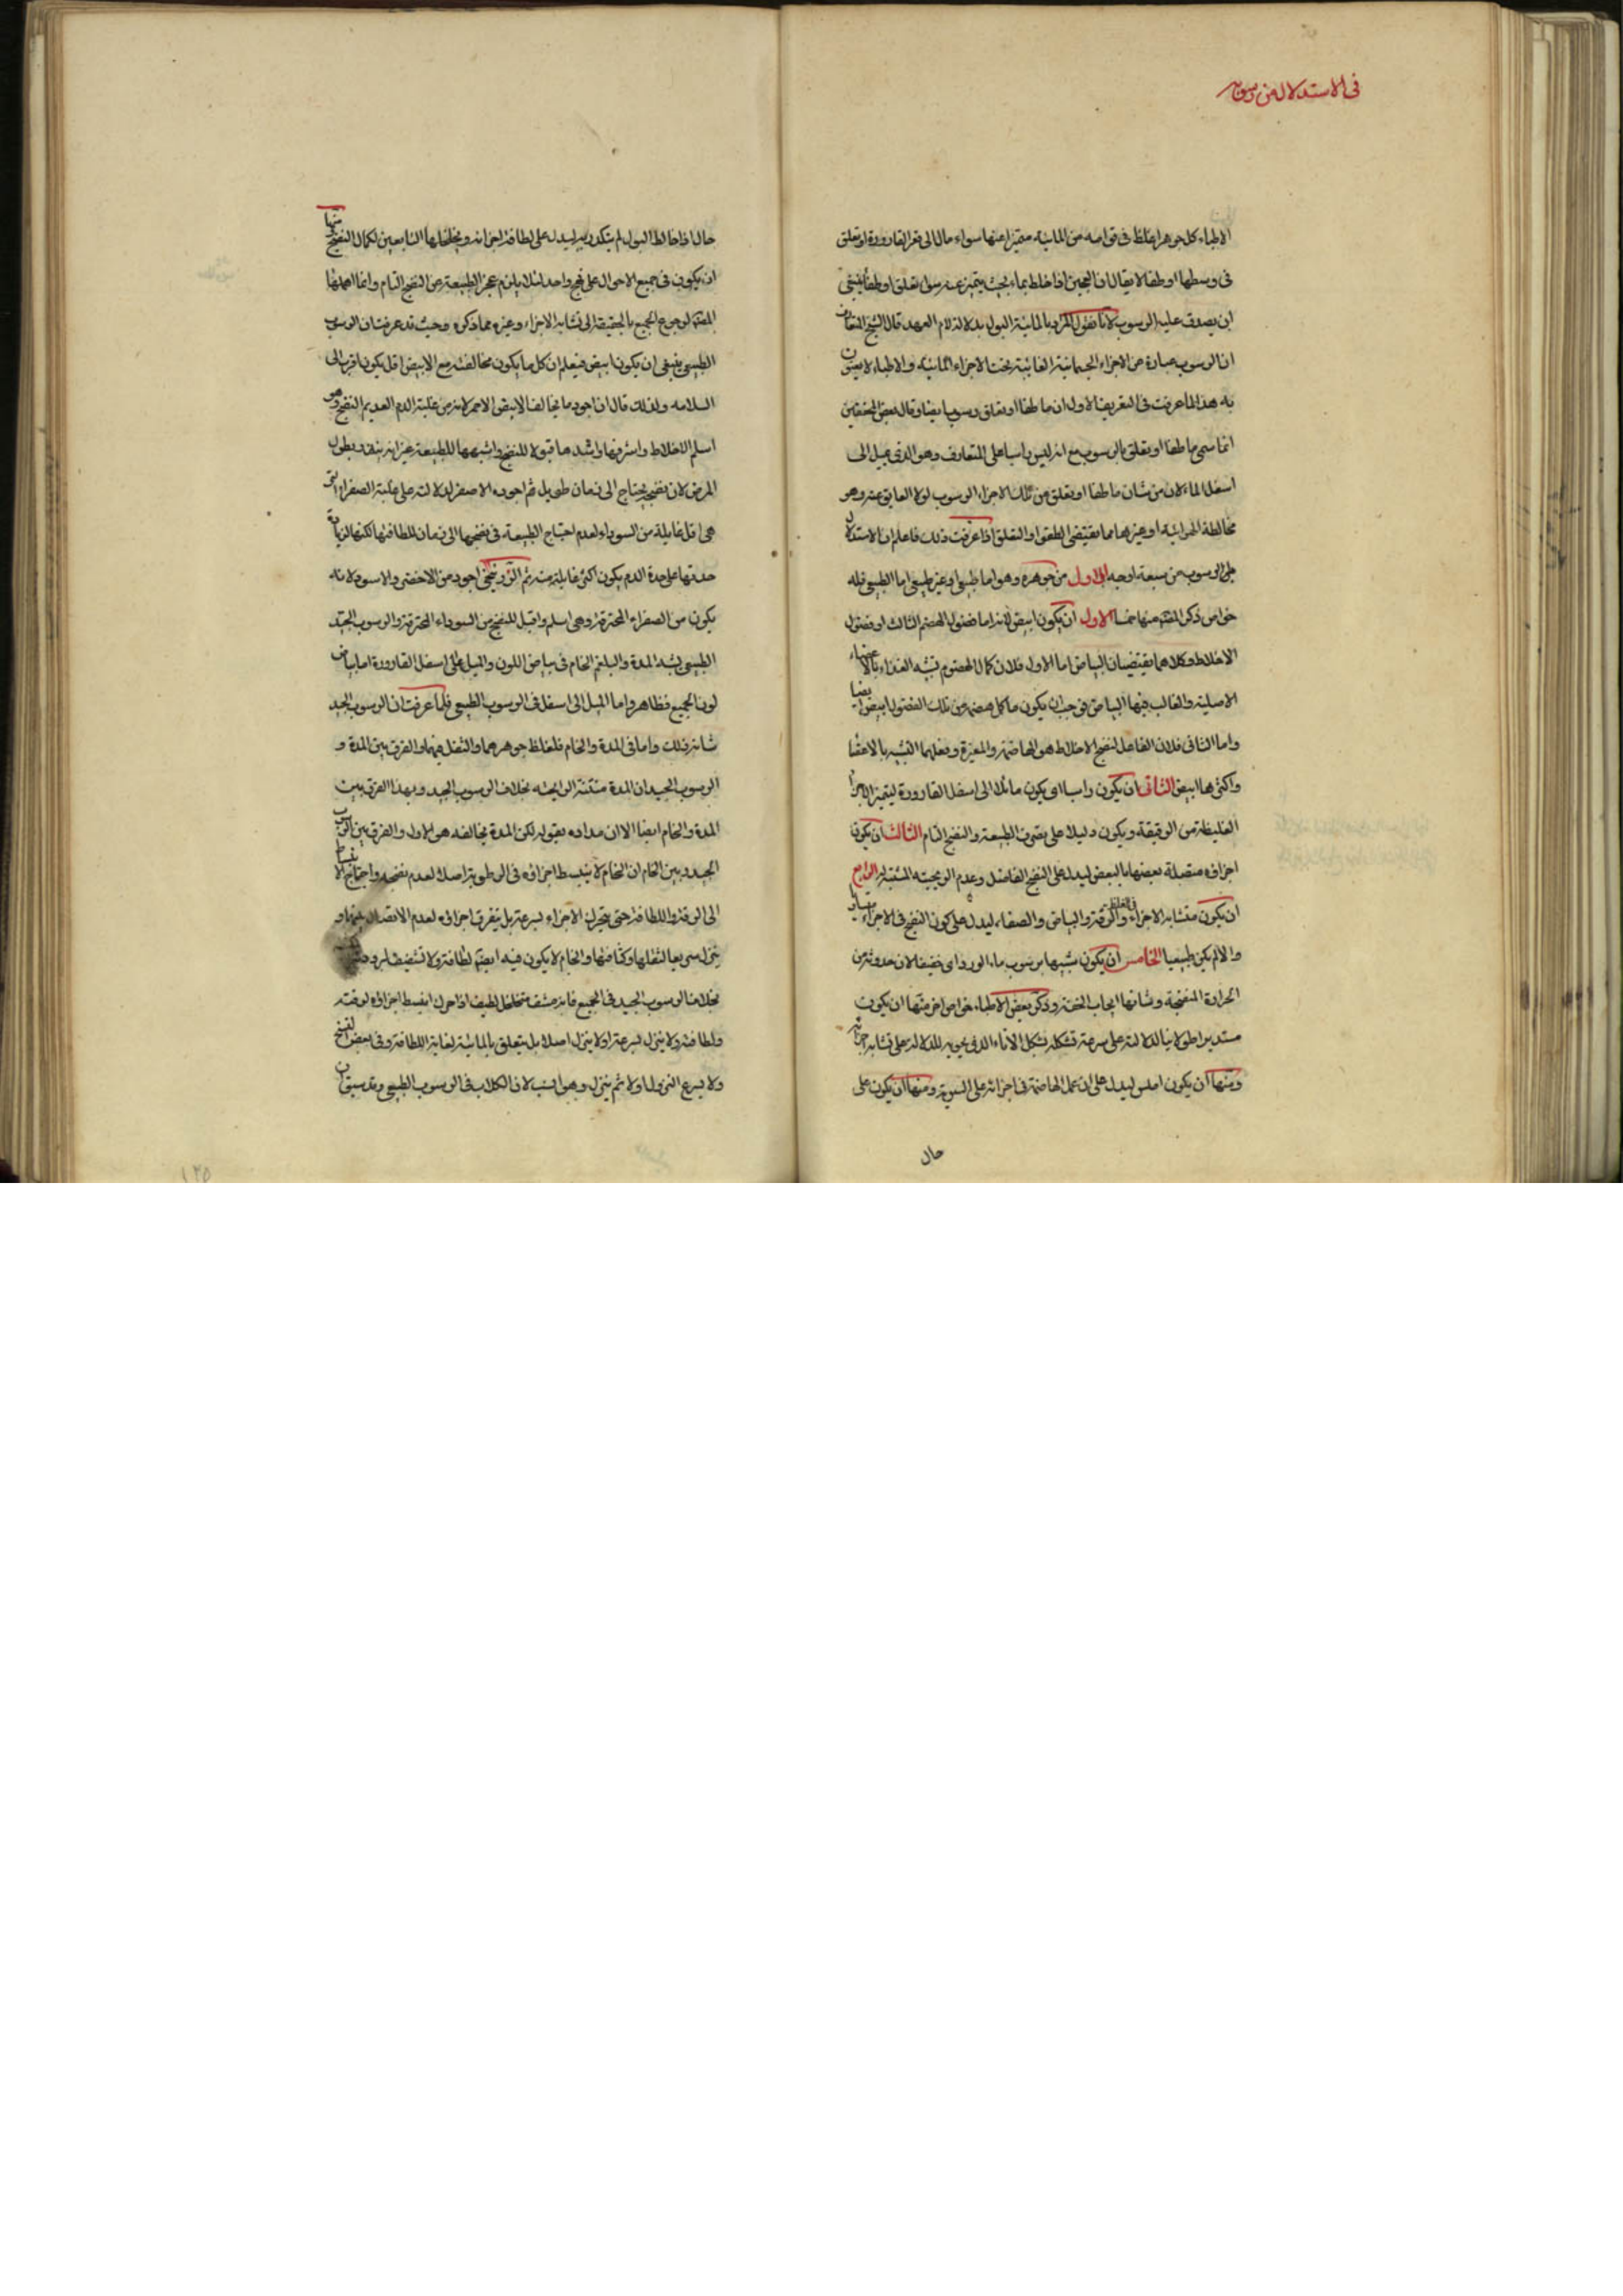 في الاستدلال من رسوبه
الاطباء كل جوهر اغلظ في قوامه من المائية متميز اعنها سواء مال الى قعر القارورة او تعلق
في وسطها او طفا لا يقال ان العجين اذا خلط بماء بحيث يتميز عنه رسوا تعلق او طفا ينبغي
ان يصدق عليه الرسوب لانا نقول المراد بالمائية البول بدلالة لام العهد قال الشيخ التعارف
ان الرسوب عبارة عن الاجزاء الجسمانية الغائبة تحت الاجزاء المائية والاطباء لا يعنون
به هذا لما عرفت في التعريف الاول ان ما طفا او تعلق رسوب ايضا وقال بعض المحققين
انما سمي ما طفا او تعلق بالرسوب مع انه ليس راسبا على المتعارف وهو الذي يميل الى
اسفل الماء لان من شان ما طفا او تعلق من تلك الاجزاء الرسوب لولا العايق عنه وهو
مخالطة الهوائية او غيرها مما يقتضي الطفو او التعلق اذا عرفت ذلك فاعلم ان الاستدلال
على الرسوب من سبعة اوجه الاول من جوهره وهو اما طبيعي او غير طبيعي اما الطبيعي فله
خواص ذكر المص منها خمسا الاول ان يكون ابيض لانه اما فضول الهضم الثالث او فضول
الاخلاط وكلاهما يقتضيان البياض اما الاول فلان كمال الهضوم تشبه الغذاء بالاعضاء
الاصلية والغالب فيها البياض فيجب ان يكون ما كمل هضمه من تلك الفضول ابيض ايضا
واما الثاني فلان الفاعل لنضج الاخلاط هو الهاضمة والمغيرة وفعلهما التشبه بالاعضا
واكثرها ابيض الثاني ان يكون راسبا اي يكون مائلا الى اسفل القارورة ليتميز الاجزا
الغليظة من الرقيقة ويكون دليلا على تصرف الطبيعة والنضج التام الثالث ان يكون
اجزاؤه متصلة بعضها بالبعض ليدل على النضج الفاضل وعدم الريحية المشتتة له الرابع
ان يكون متشابه الاجزاء في الغلظ والرقة والبياض والصفاء ليدل على كون النضج في الاجزاء متساويا
والا لم يكن طبيعيا الخامس ان يكون شبيها برسوب ماء الورد اي خفيفا لان حدوثه من
الحرارة المنضجة وشانها ايجاب الخفة وذكر بعض الاطباء خواص اخر منها ان يكون
مستديرا طولانيا لدلالته على سرعة تشكله بشكل الاناء الذي يحويه للدلالة على تشابه اجزائه
ومنها ان يكون املس ليدل على ان عمل الهاضمة في اجزائه على السوية ومنها ان يكون على
حال
حال اذا خالط البول لم يتكدر به ليدل على لطافة اجزائه وتخلخلها التابعين لكمال النضج ومنها
ان يكون في جميع الاحوال على نهج واحد لئلا يلزم عجز الطبيعة عن النضج التام وانما اهملها
المص لرجوع الجميع بالحقيقة الى تشابه الاجزاء وغيره مما ذكره وحيث قد عرفت ان الرسوب
الطبيعي ينبغي ان يكون ابيض فيعلم ان كل ما يكون مخالفته مع الابيض اقل يكون اقرب الى
السلامة ولذلك قال ان اجود ما يخالف الابيض الاحمر لانه من غلبة الدم العديم النضج وهو
اسلم الاخلاط واشرفها واشدها قبولا للنضج واشبهها للطبيعة غير انه ينذر بطول
المرض لان نضجه يحتاج الى زمان طويل ثم اجوده الاصفر لدلالته على غلبة الصفراء التي
هي اقل غايلة من السوداء لعدم احتياج الطبيعة في نضجها الى زمان للطافتها لكنها لزيادة
حدتها على حدة الدم يكون اكثر غايلة منه ثم الزرنيخي اجود من الاخضر والاسود لانه
يكون من الصفراء المحترقة وهي اسلم واقبل للنضج من السوداء المحترقة والرسوب الجيد
الطبيعي يشبه المدة والبلغم الخام في بياض اللون والميل الى اسفل القارورة اما بياض
لون الجميع فظاهر واما الميل الى اسفل في الرسوب الطبيعي فلما عرفت ان الرسوب الجيد
شانه ذلك واما في المدة والخام فلغلظ جوهرهما والثقل فيهما والفرق بين المدة و
الرسوب الجيد ان المدة منتنة الرايحة بخلاف الرسوب الجيد وبهذا الفرق بين
المدة والخام ايضا الا ان مراده بقوله لكن المدة يخالفه هو الاول والفرق بين الرسوب
الجيد وبين الخام ان الخام لا ينبسط اجزاؤه في الرطوبة اصلا لعدم نضجه واحتياج الانبساط
الى الرقة واللطافة حتى يتحرك الاجزاء بسرعة بل يتفرق اجزاؤه لعدم الاتصال فيها و
ينزل سريعا لثقلها وكثافتها والخام لا يكون فيه ايضا لطافة ولا تشفيف
بخلاف الرسوب الجيد في الجميع فانه مشف متخلخل لطيف اذا حرك انبسط اجزاؤه لرقته
ولطافته ولا ينزل بسرعة او لا ينزل اصلا بل يتعلق بالمائية لغاية اللطافة وفي بعض النسخ
ولا يسرع النزول اولا ثم ينزل وهو انسب لان الكلام في الرسوب الطبيعي وقد سبق ان
١٢٥